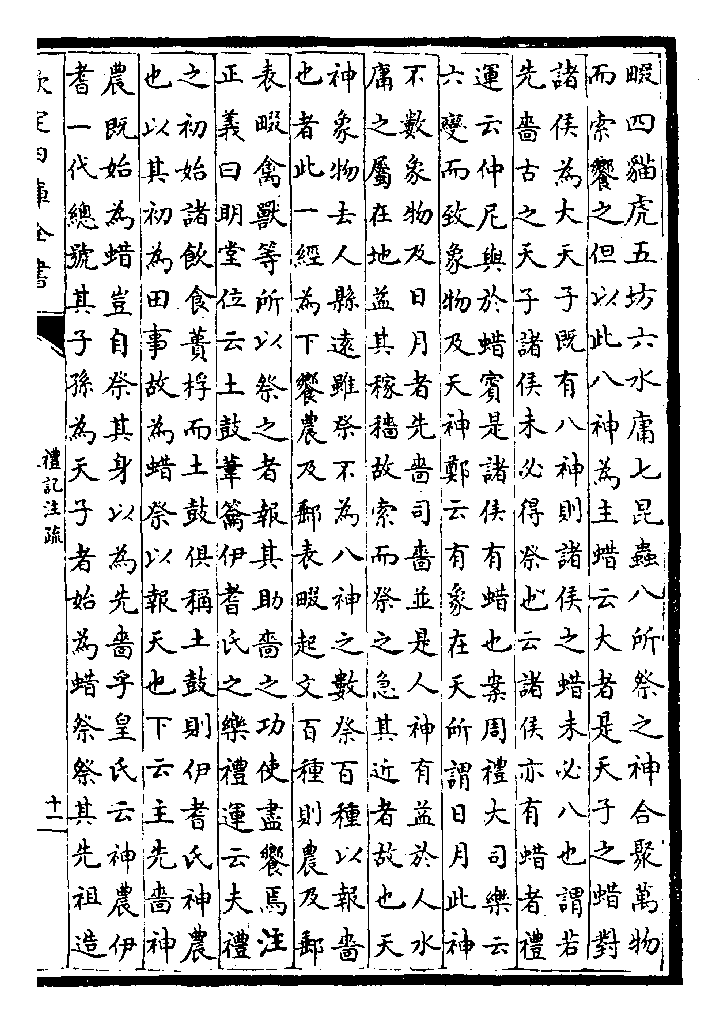 畷四貓虎五坊六水庸七昆蟲八所祭之神合聚萬物
而索饗之但以此八神為主蜡云大者是天子之蜡對
諸侯為大天子既有八神則諸侯之蜡未必八也謂若
先嗇古之天子諸侯未必得祭也云諸侯亦有蜡者禮
運云仲尼與於蜡賓是諸侯有蜡也案周禮大司樂云
六變而致象物及天神鄭云有象在天所謂日月此神
不數象物及日月者先嗇司嗇並是人神有益於人水
庸之屬在地益其稼穡故索而祭之急其近者故也天
神象物去人縣遠雖祭不為八神之數祭百種以報嗇
也者此一經為下饗農及郵表畷起文百種則農及郵
表畷禽獸等所以祭之者報其助嗇之功使盡饗焉注
正義曰明堂位云土鼓葦籥伊耆氏之樂禮運云夫禮
之初始諸飲食蕢桴而土鼓俱稱土鼓則伊耆氏神農
也以其初為田事故為蜡祭以報天也下云主先嗇神
農既始為蜡豈自祭其身以為先嗇乎皇氏云神農伊
耆一代總號其子孫為天子者始為蜡祭祭其先祖造
欽定四庫全書
禮記注疏
十一